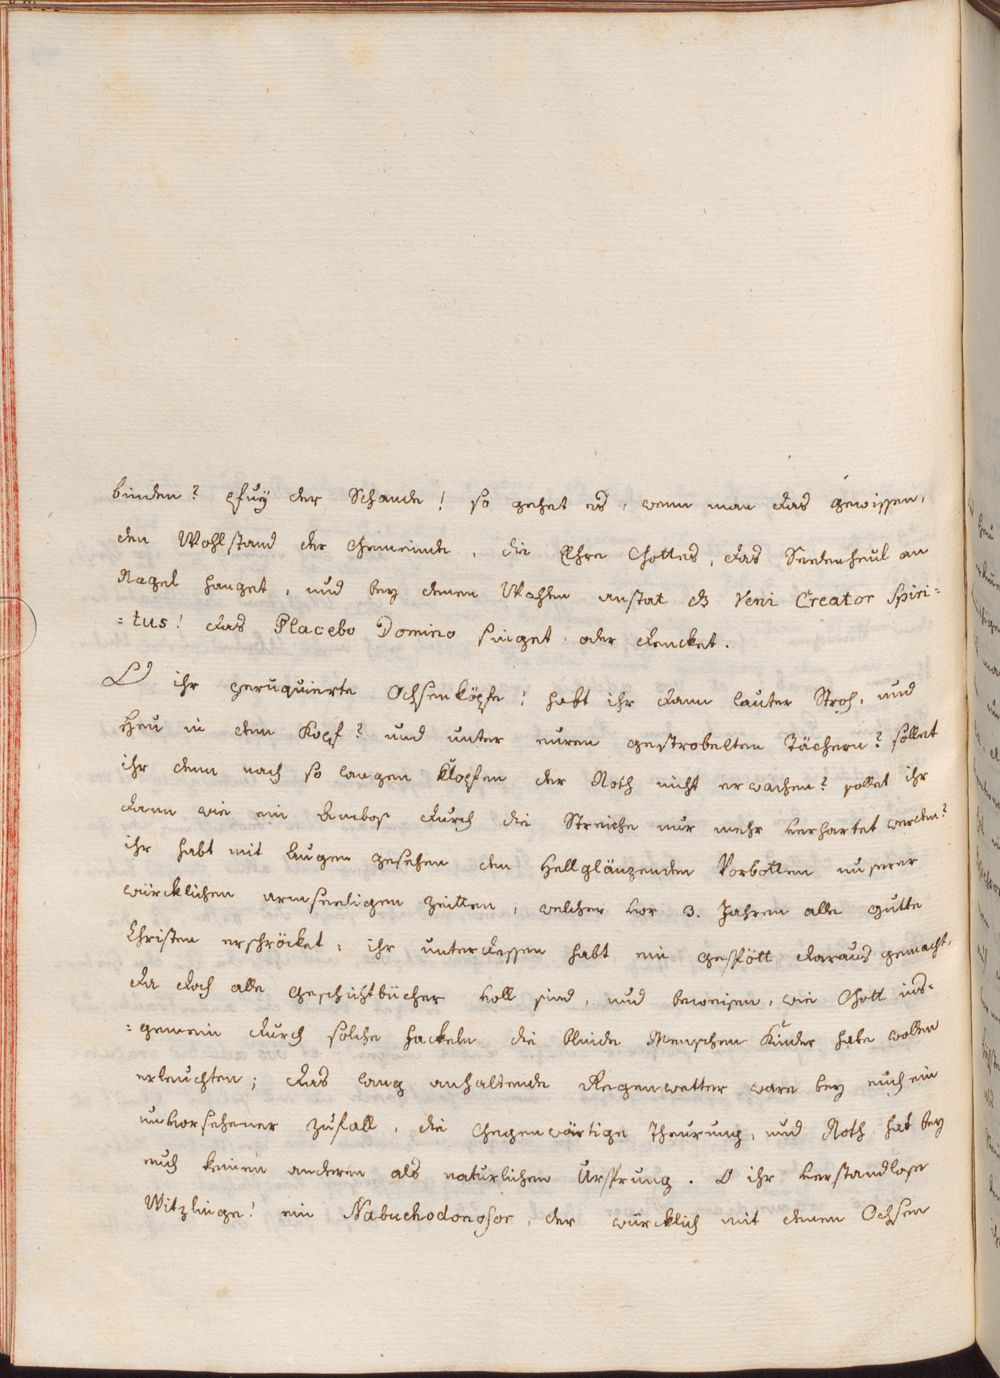 binden? Pfuÿ der Schande! so gehet es, wenn man das gewissen,
den Wohlstand der Gemeinde, die Ehre Gottes, das Seelenheÿl an
Nagel hanget, und beÿ denen Wahlen anstat dß Veni Creator Spiri=
=tus! das Placebo Domino singet, oder dencket.
O ihr peruquierte Ochsenköpfe! habt ihr dann lauter Stroh, und
Heu in dem Kopf? und unter euren gestrobelten Dächern? sollet
ihr denn nach so langen Klopfen der Noth nicht erwachen? sollet ihr
dann wie ein Amboß durch die Streiche nur mehr verhartet werden?
ihr habt mit Augen gesehen den Hellglänzenden Vorbotten unserer
würcklichen armseeligen Zeitten, welcher vor 3. Jahren alle gutte
Christen erschröcket: ihr unterdessen habt ein gespött daraus gemacht,
da doch alle geschichtbücher voll sind, und beweisen, wie Gott ins=
=gemein durch solche fackeln die blinde Menschen Kinder habe wollen
erleuchten; das lang anhaltende Regenwetter ware beÿ euch ein
unvorsehener Zufall, die Gegenwärtige Theurung, und Noth hat beÿ
euch keinen anderen als naturlichen Ursprung. O ihr verstandlose
Witzlinge! ein Nabuchodonosor, der würcklich mit denen Ochsen